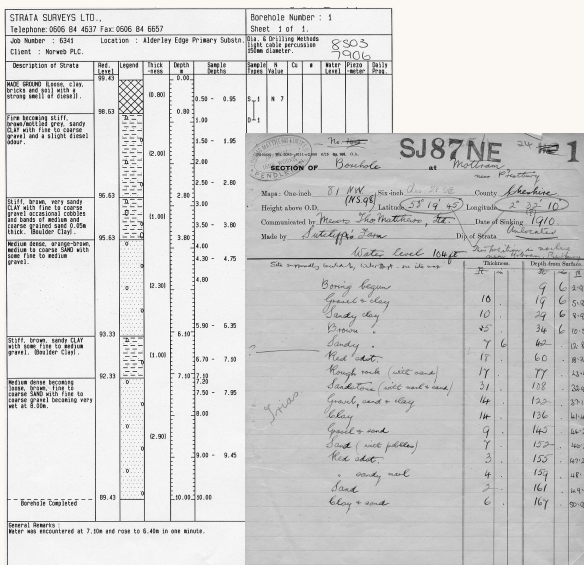 STRATA SURVEYS LTD.,
Telephone: 0606 84 4637 Fax: 0606 84 6657
Job Number : 6341 Location : Alderley Edge Primary Substn.
Client : Norweb PLC.
Borehole Number : 1
Sheet 1 of 1.
Dia. & Drilling Methods
light cable percussion
150mm diameter.
8503
7906
Description of Strata Red. Level Legend Thick-ness Depth m Sample Depths Sample Types N Value Cu ø Water Level Piezo-meter Daily Prog.
99.43 0.00
MADE GROUND (Loose, clay,
bricks and soil with a
strong smell of diesel).
(0.80)
0.50 - 0.95 S 1 N 7
98.63 0.80
Firm becoming stiff,
brown/mottled grey, sandy
CLAY with fine to coarse
gravel and a slight diesel
odour.
1.00 D 1
(2.00)
1.50 - 1.95
2.00
2.50 - 2.80
96.63 2.80
Stiff, brown, very sandy
CLAY with fine to coarse
gravel occasional cobbles
and bands of medium and
coarse grained sand 0.05m
thick. (Boulder Clay).
(1.00)
3.00
3.50 - 3.80
95.63 3.80
Medium dense, orange-brown,
medium to coarse SAND with
some fine to medium
gravel.
4.30 - 4.75
4.80
(2.30)
5.90 - 6.35
93.33 6.10
Stiff, brown, sandy CLAY
with some fine to medium
gravel. (Boulder Clay).
(1.00)
6.70 - 7.10
92.33 7.10 7.10
7.20
Medium dense becoming
loose, brown, fine to
coarse SAND with fine to
coarse gravel becoming very
wet at 8.00m.
7.50 - 7.95
8.00
(2.90)
9.00 - 9.45
89.43 10.00 10.00
Borehole Completed
General Remarks :
Water was encountered at 7.10m and rose to 6.40m in one minute.
SJ87NE 24 1
SECTION OF Borehole at Mottram
near Prestbury
Maps: One-inch 81 NW Six-inch County Cheshire
(NS.98)
Height above O.D. Latitude 53° 19' 45" Longitude 2° 10"
Communicated by Messrs Tho Matthews, Ltd. Date of Sinking 1910.
Made by Sutcliffe's Farm Dip of Strata
Water level 104 ft
Thickness. Depth from Surface.
Ft in ft
Boring begun 9 6
Gravel & clay 10 . 19 6
Sandy clay 10 . 29 6
Brown " 5 34 6
Sandy " 7 6 42
Red " 18 . 60
Rough rock (with sand) 17 77
Sandstone 31 . 108
Gravel, sand & clay 14 . 122
Clay 14 . 136
Gravel & sand 9 . 145
Sand (with pebbles) 7 . 152
Red 3 . 155
" sandy marl 4 . 159
Sand 2 161
Clay & sand 6 . 167
Trias